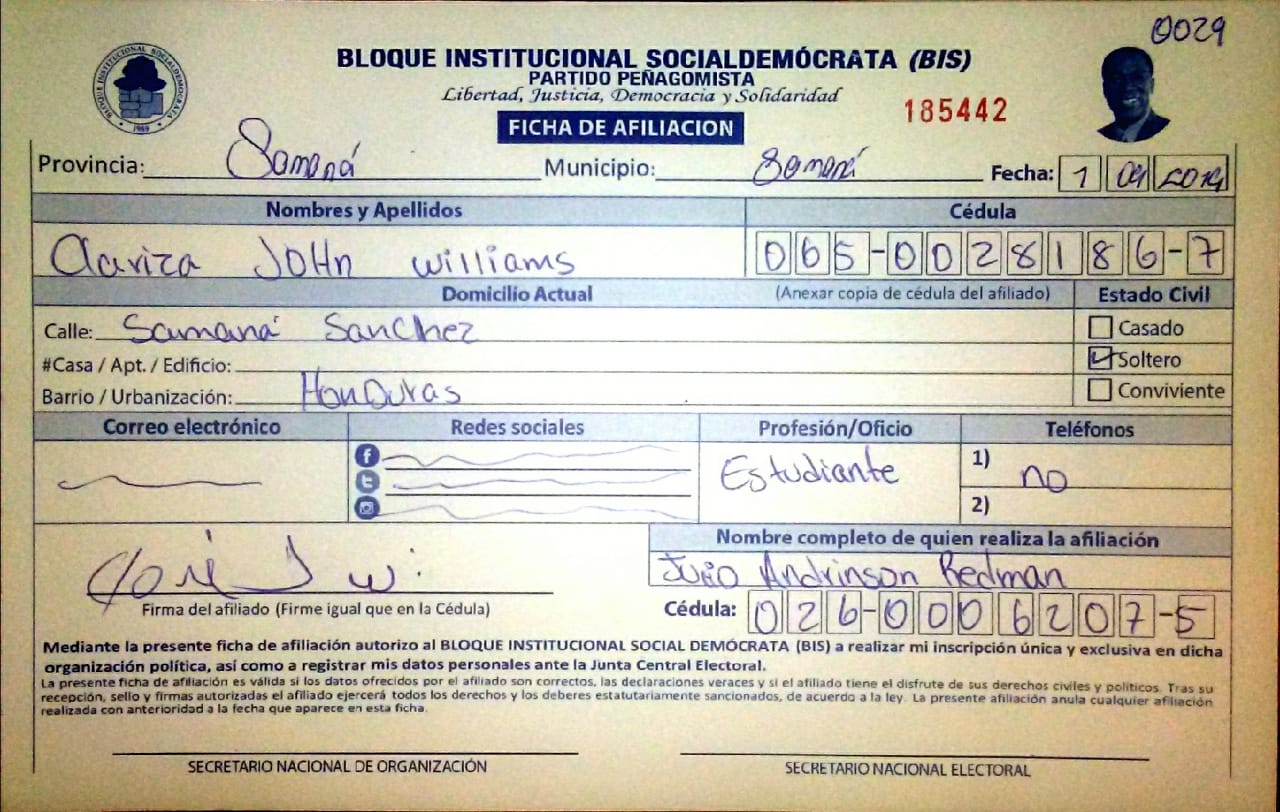 0029
BLOQUE INSTITUCIONAL SOCIALDEMÓCRATA (BIS)
PARTIDO PEÑAGOMISTA
Libertad, Justicia, Democracia y Solidaridad
185442
FICHA DE AFILIACION
BLOQUE INSTITUCIONAL SOCIALDEMOCRATA
1989
Provincia: Samaná Municipio: Samaná Fecha: 1 09 2019
Nombres y Apellidos Cédula
Clariza JOHn williams 065-0028186-7
Domicilio Actual (Anexar copia de cédula del afiliado) Estado Civil
Calle: Samaná Sanchez Casado
#Casa / Apt. / Edificio: Soltero
Barrio / Urbanización: HonDuras Conviviente
Correo electrónico Redes sociales Profesión/Oficio Teléfonos
Estudiante 1) no
2)
Nombre completo de quien realiza la afiliación
Andrinson Redman
Firma del afiliado (Firme igual que en la Cédula) Cédula: 026-0006207-5
Mediante la presente ficha de afiliación autorizo al BLOQUE INSTITUCIONAL SOCIAL DEMÓCRATA (BIS) a realizar mi inscripción única y exclusiva en dicha
organización política, así como a registrar mis datos personales ante la Junta Central Electoral.
La presente ficha de afiliación es válida si los datos ofrecidos por el afiliado son correctos, las declaraciones veraces y si el afiliado tiene el disfrute de sus derechos civiles y políticos. Tras su
recepción, sello y firmas autorizadas el afiliado ejercerá todos los derechos y los deberes estatutariamente sancionados, de acuerdo a la ley. La presente afiliación anula cualquier afiliación
realizada con anterioridad a la fecha que aparece en esta ficha.
SECRETARIO NACIONAL DE ORGANIZACIÓN SECRETARIO NACIONAL ELECTORAL